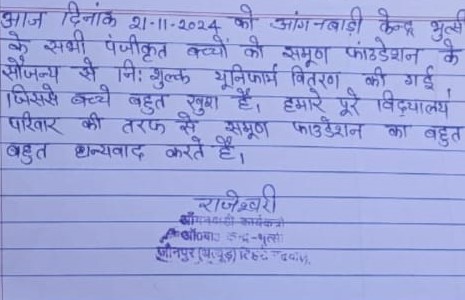 आज दिनांक 21-11-2024 को आंगनबाड़ी केन्द्र भुत्सी
के सभी पंजीकृत बच्चों को समूण फांउडेशन के
सौजन्य से नि: शुल्क यूनिफार्म वितरण की गई
जिससे बच्चे बहुत खुश हैं, हमारे पूरे विद्यालय
परिवार की तरफ से समूण फाउडेशन का बहुत
बहुत धन्यवाद करते है।
राजेश्वरी
आँगनबाड़ी कार्यकत्री
केन्द्र-भुत्सी
जौनपुर